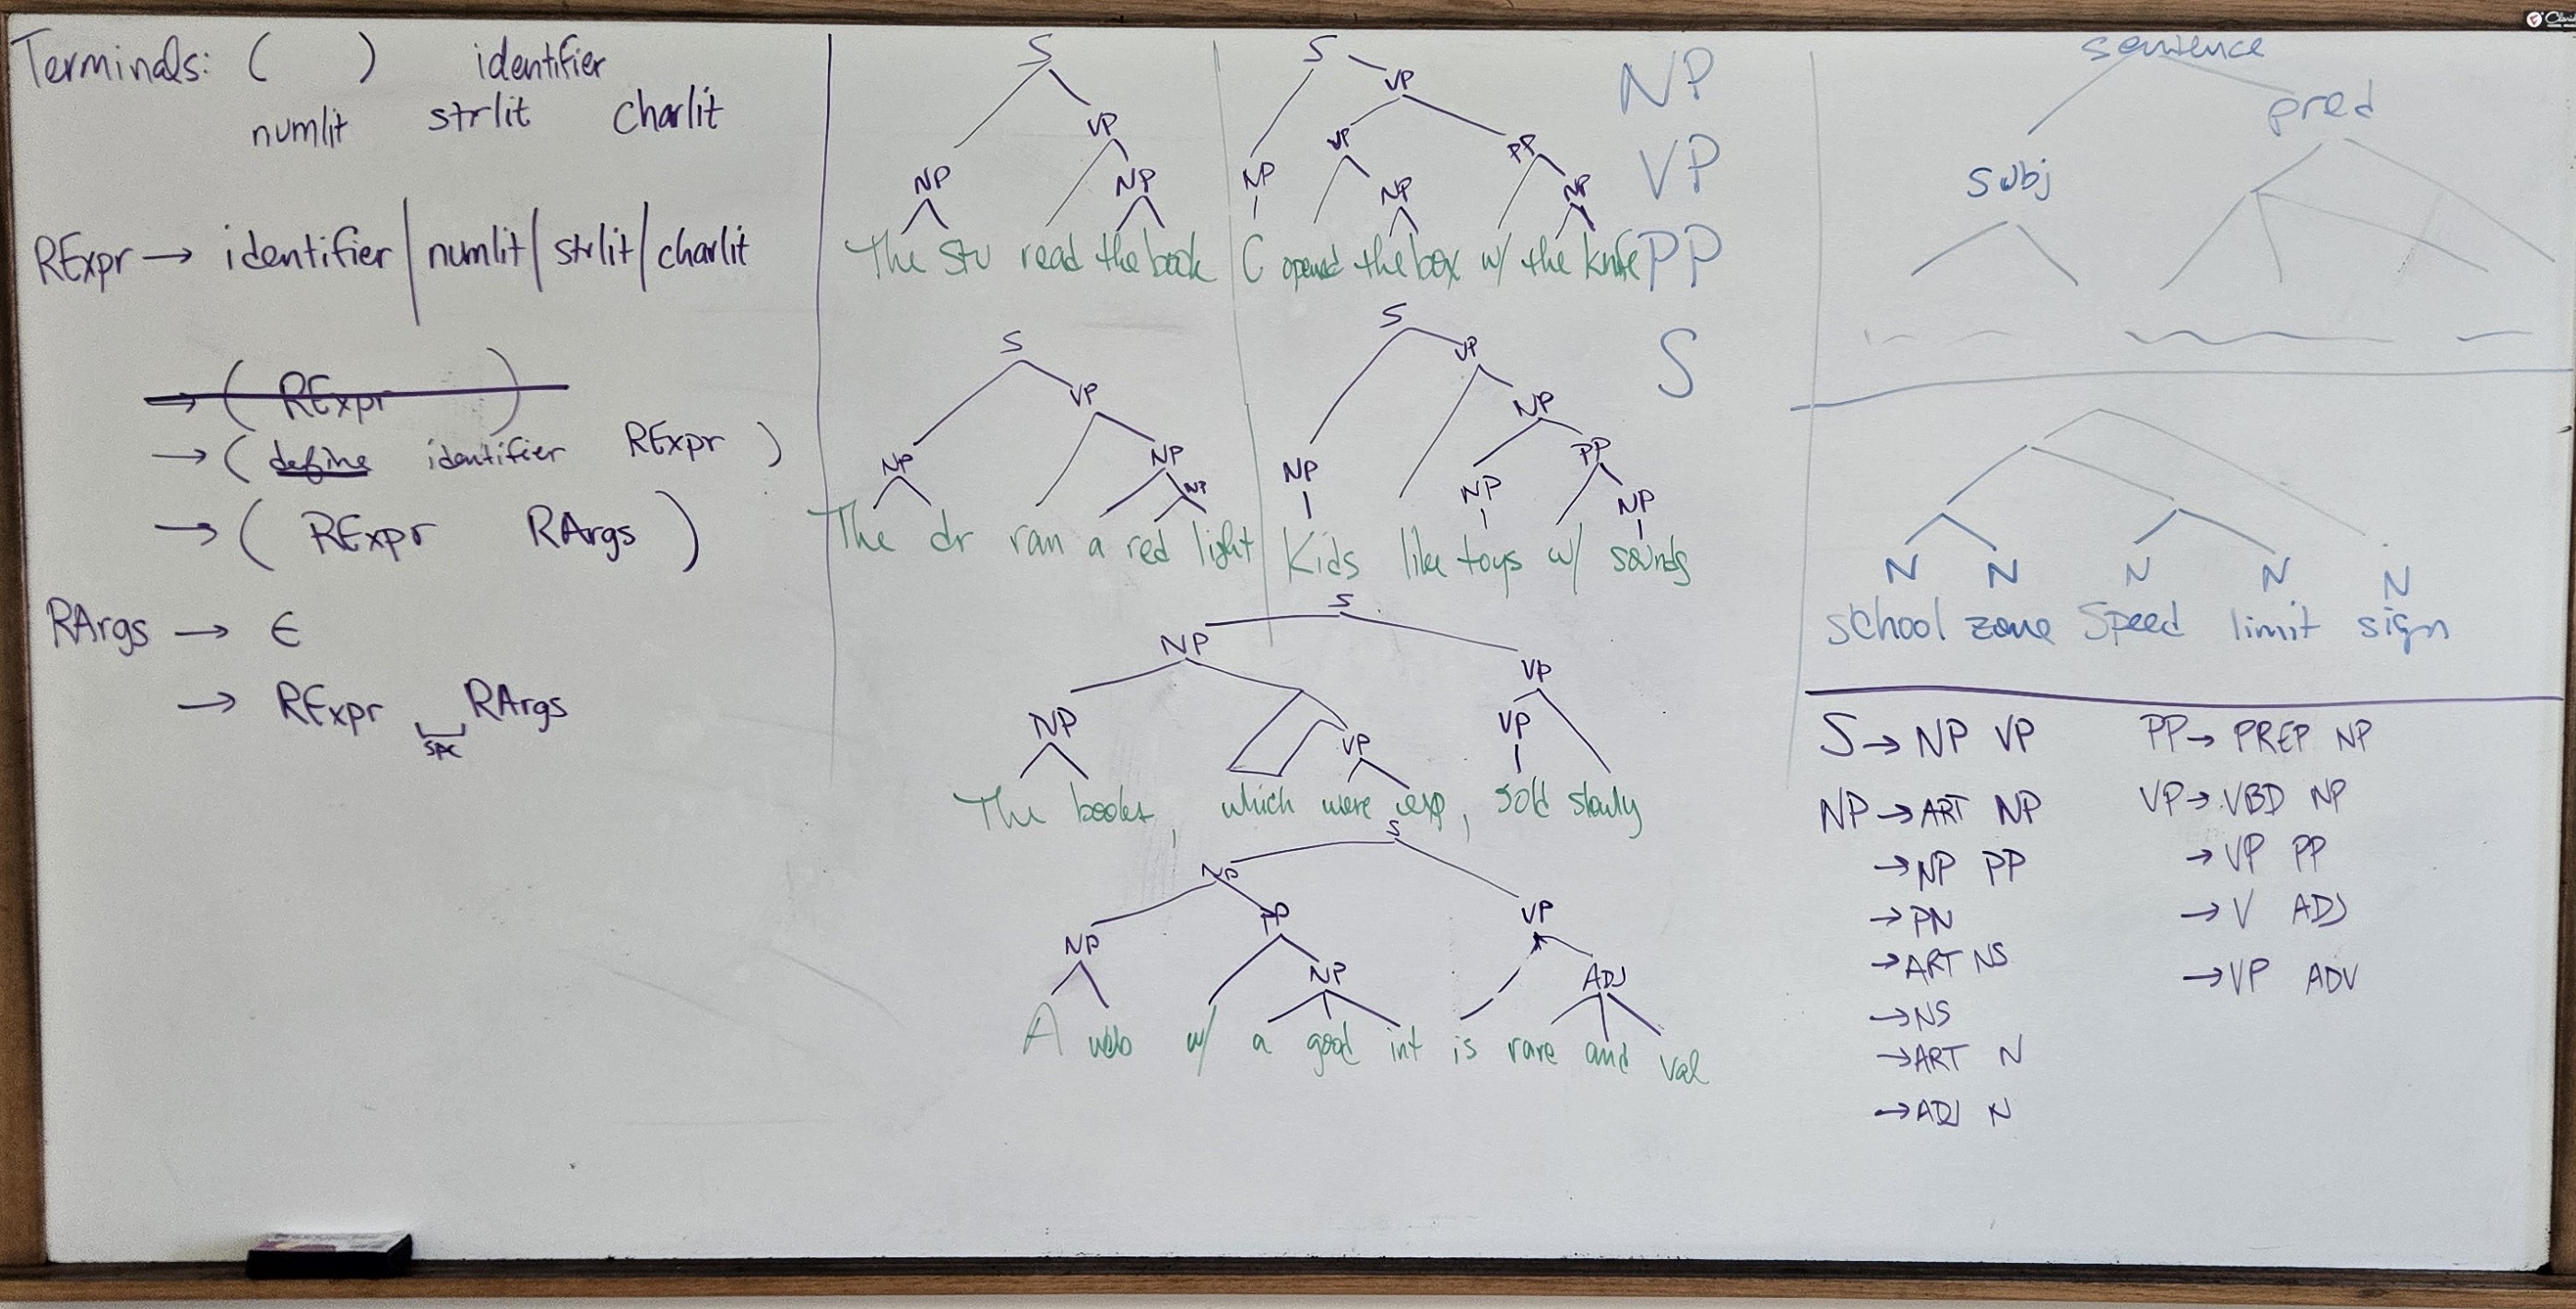 Terminals: ( ) identifier
numlit strlit charlit
RExpr → identifier | numlit | strlit | charlit
→ ( RExpr )
→ ( define identifier RExpr )
→ ( RExpr RArgs )
RArgs → ϵ
→ RExpr RArgs
spc
S
VP
NP NP
The stu read the book
S
VP
VP PP
NP NP NP
C opened the box w/ the knife
NP
VP
PP
S
S
VP
NP NP
NP
The dr ran a red light
S
VP
NP
NP NP PP
NP
Kids like toys w/ sounds
S
NP VP
NP VP VP
The books, which were exp, sold slowly
S
NP
PP VP
NP NP ADJ
A web w/ a good int is rare and val
sentence
subj pred
N N N N N
school zone speed limit sign
S → NP VP
NP → ART NP
→ NP PP
→ PN
→ ART NS
→ NS
→ ART N
→ ADJ N
PP → PREP NP
VP → VBD NP
→ VP PP
→ V ADJ
→ VP ADV